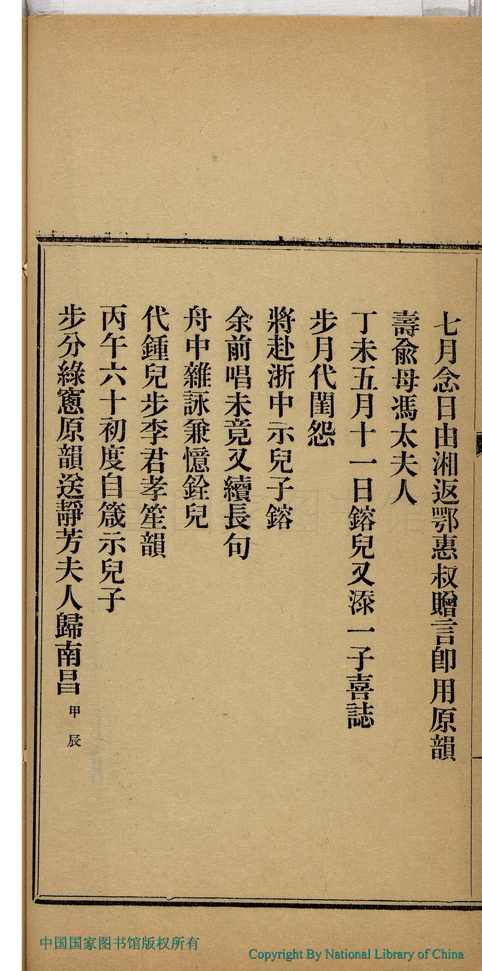 七月念日由湘返鄂惠叔贈言卽用原韻
壽兪母馮太夫人
丁未五月十一日鎔兒又添一子喜誌
步月代閨怨
將赴浙中示兒子鎔
余前唱未竟又續長句
舟中雜詠兼憶銓兒
代鍾兒步李君孝笙韻
丙午六十初度自箴示兒子
步分綠窻原韻送靜芳夫人歸南昌 甲辰
中国国家图书馆版权所有
Copyright By National Library of China